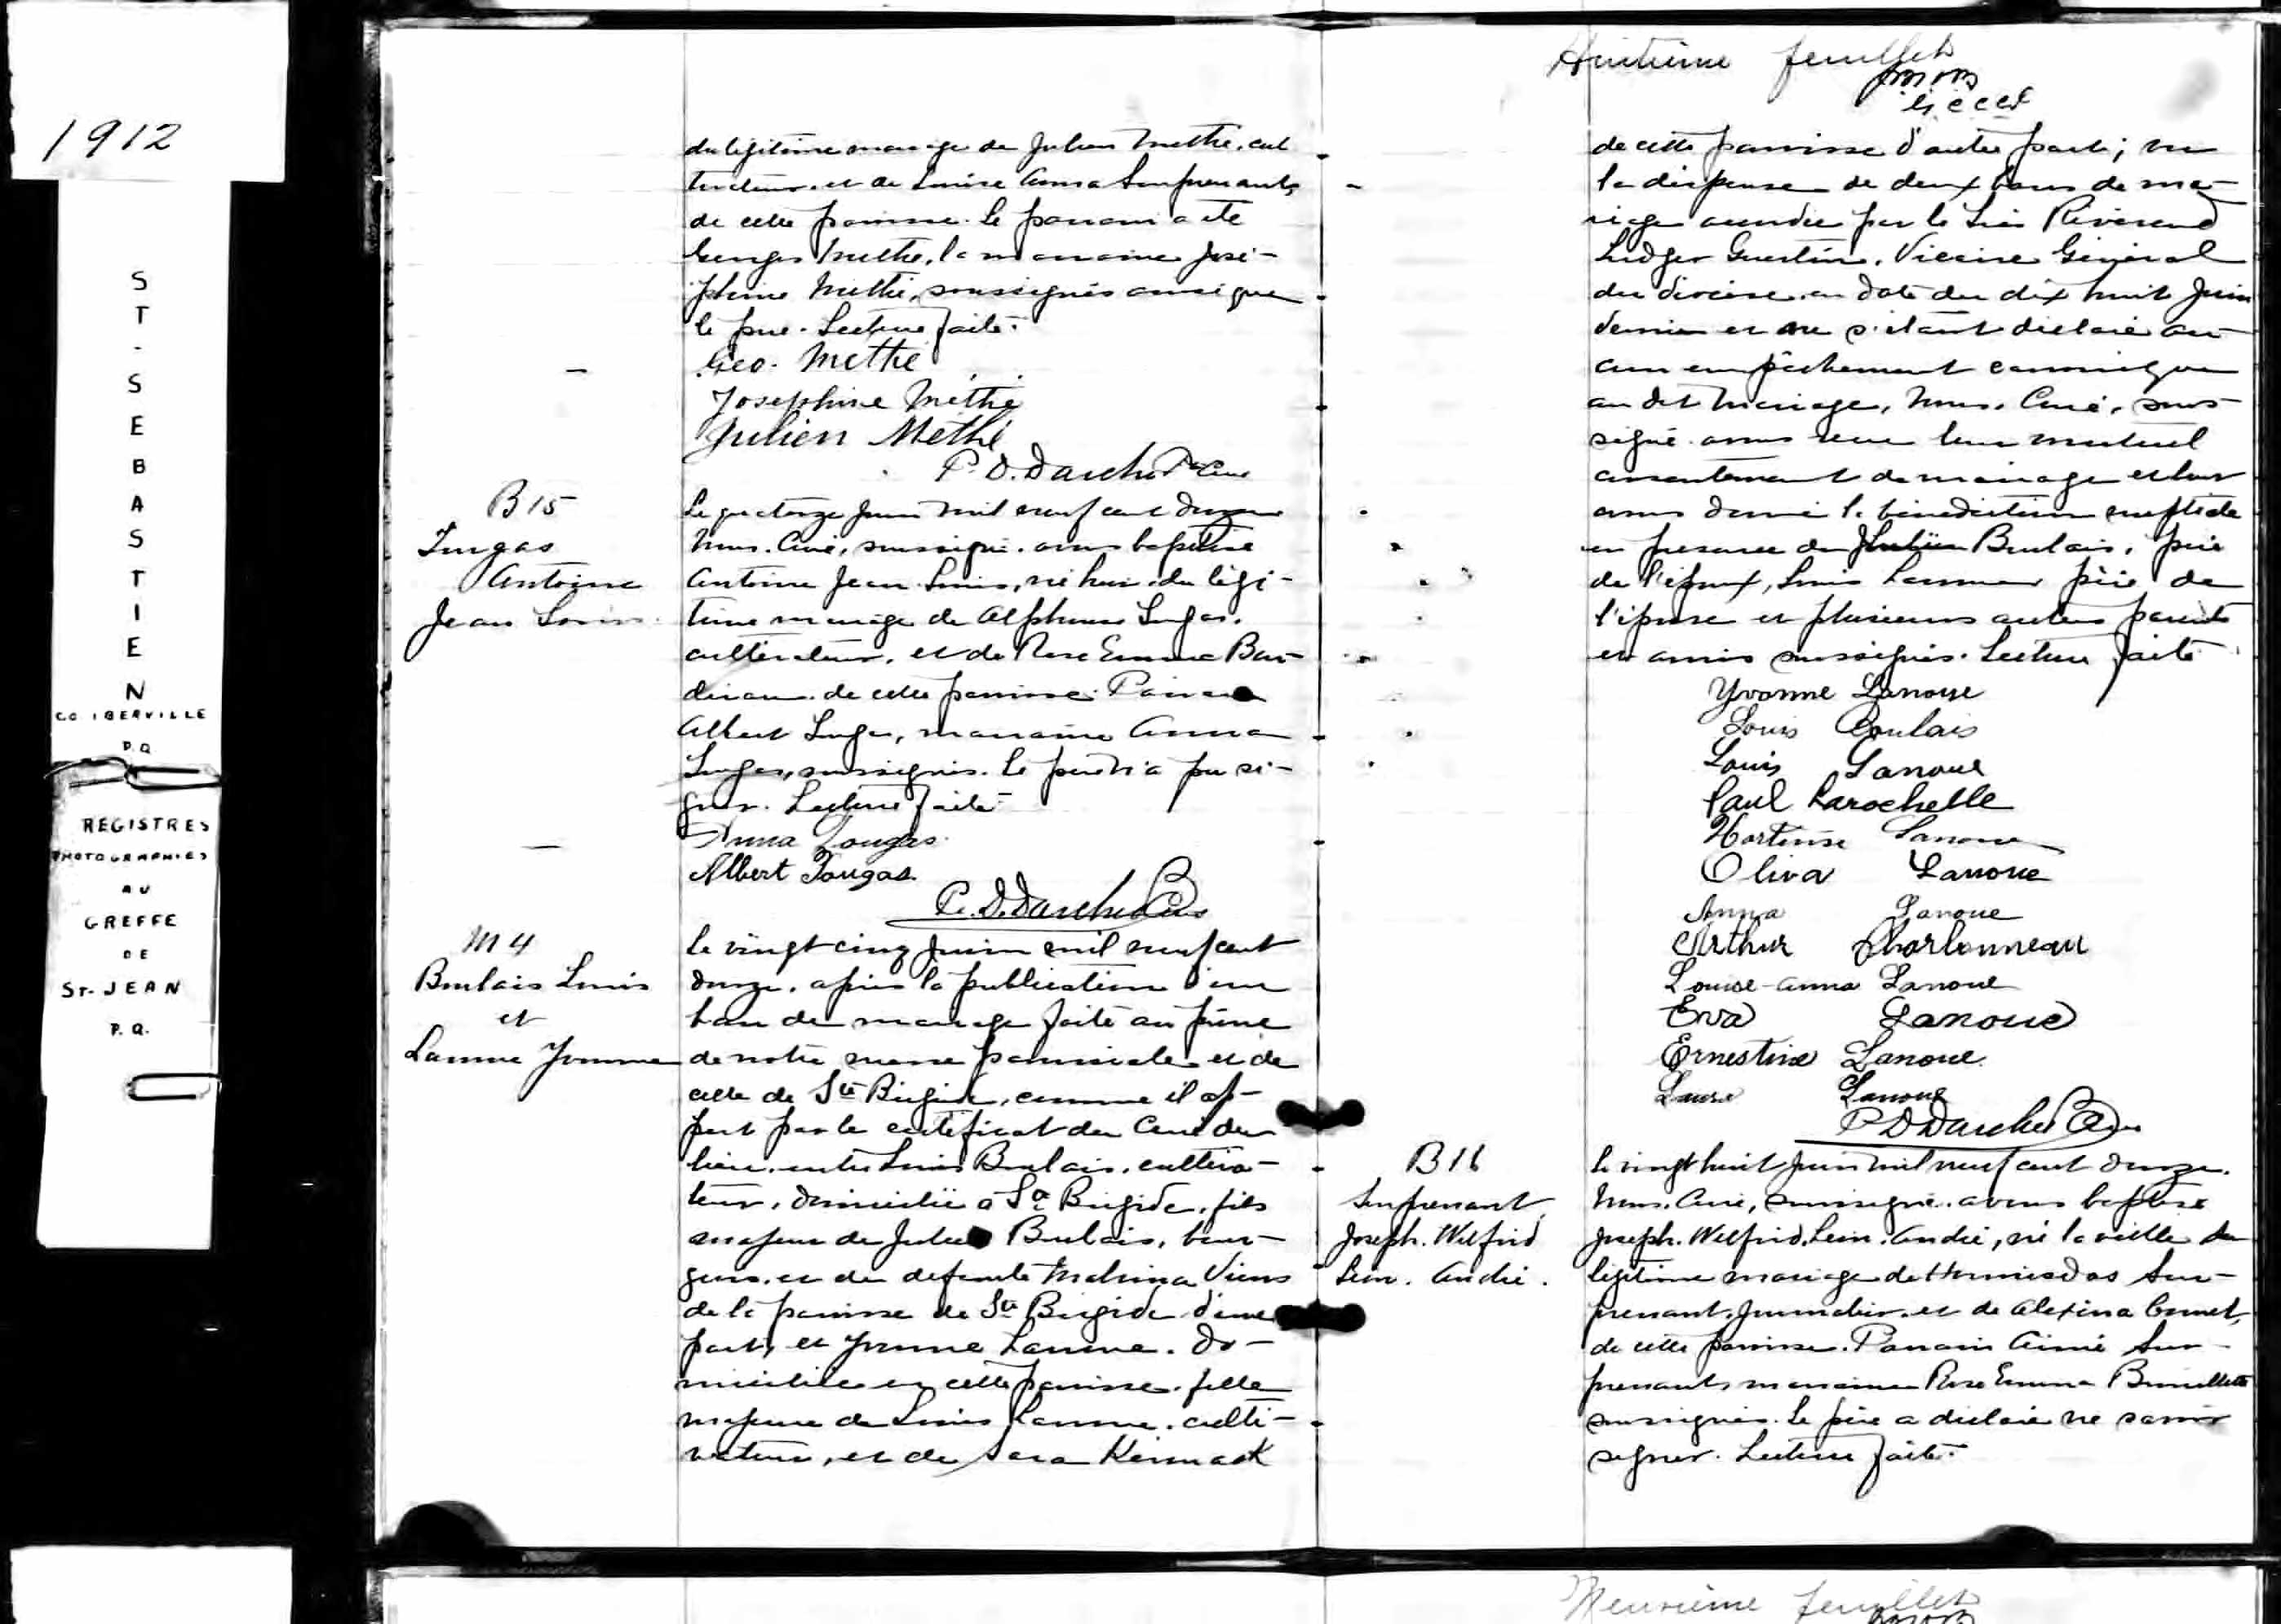 1912
ST-SEBASTIEN
CO IBERVILLE
P.Q
REGISTRES
PHOTOGRAPHIES
AU
GREFFE
DE
ST-JEAN
P.Q.
du légitime mariage de Julien Methé, cul
tivateur et de Louise Anna Surprenant,
de cette paroisse. Le parrain a été
Georges Methé, la marraine José-
phine Methé, soussignés ainsi que
le père. Lecture faite.
Geo. Methé
Josephine Méthé
Julien Methé
P. D. Darche Ptre Curé
B 15
Fugas
Antoine
Jean Louis
Le quatorze Juin mil neuf cent douze
Nous, Curé, soussigné, avons baptisé
Antoine Jean Louis, né hier du légi-
time mariage de Alphonse
cultivateur, et de Rose Emma Bou-
de cette paroisse. Parrain
Albert marraine Anna
soussignés. Le père n'a pu si-
gner. Lecture faite.
Anna Fougas
Albert Fougas
P. D. Darche Curé
M 4
Boulais Louis
et
Lanoue Yvonne
Le vingt cinq Juin mil neuf cent
douze, après la publication d'un
ban de mariage faite au prône
de notre messe paroissiale et de
celle de Ste Brigide, comme il ap-
pert par le certificat du Curé du
lieu, entre Louis Boulais, cultiva-
teur, domicilié à Ste Brigide, fils
majeur de Julien Boulais, bour-
geois, et de défunte Malvina Viens
de la paroisse de Ste Brigide d'une
part, et Yvonne Lanoue, do-
miciliée en cette paroisse, fille
majeure de Louis Lanoue, culti-
vateur, et de Sara
Huitième feuillet
de cette paroisse d'autre part; vu
la dispense de deux bans de ma-
riage accordée par le Très Révérend
Ledger Guertin, Vicaire Général
du diocèse en date du dix huit Juin
dernier et ne s'étant déclaré au-
cun empêchement canonique
au dit mariage, Nous, Curé, sous-
signé avons reçu leur mutuel
consentement de mariage et leur
avons donné la bénédiction nuptiale
en présence de Julien Boulais, père
de l'époux, Louis Lanoue père de
l'épouse et plusieurs autres parents
et amis soussignés. Lecture faite
Yvonne Lanoue
Louis Boulais
Louis Lanoue
Paul Larochelle
Hortense Lanoue
Oliva Lanoue
Anna Lanoue
Arthur Charbonneau
Louise-Anna Lanoue
Eva Lanoue
Ernestine Lanoue
Laura Lanoue
P D Darche Curé
B 16
Surprenant
Joseph. Wilfrid
Léon. André.
Le vingt huit Juin mil neuf cent douze.
Nous, Curé, soussigné, avons baptisé
Joseph. Wilfrid. Léon. André, né la veille du
légitime mariage de Hormisdas Sur-
prenant, journalier, et de Alexina
de cette paroisse. Parrain Aimé Sur-
prenant, marraine Rose Emma
soussignés. Le père a déclaré ne savoir
signer. Lecture faite.
Neuvième feuillet